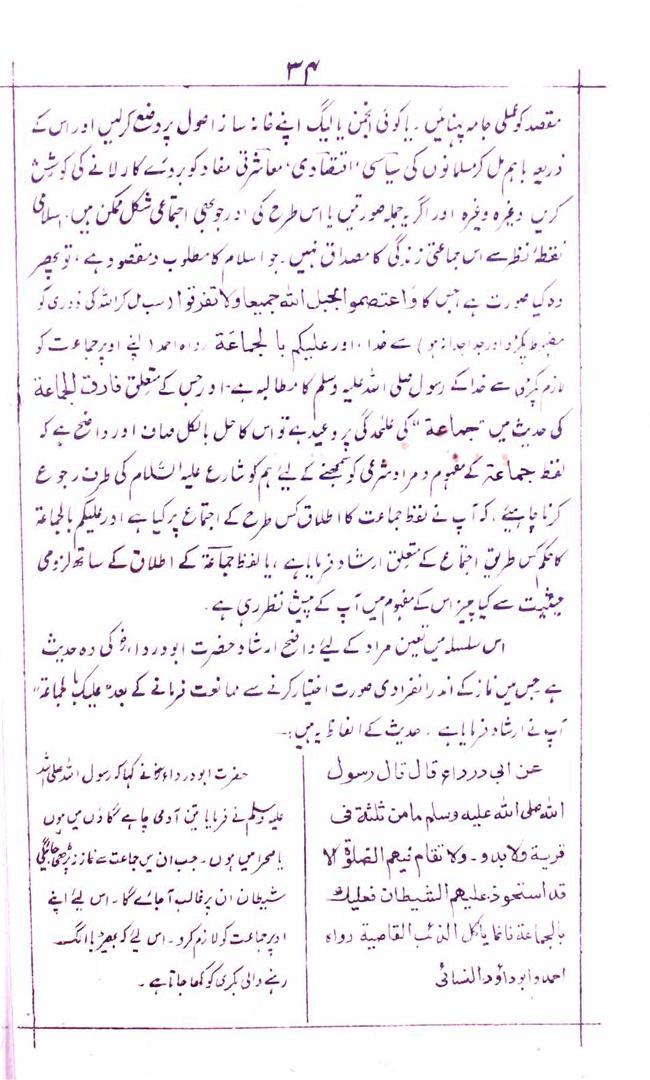 ۳۴
مقصد کو عملی جامہ پہنائیں ۔ یا کوئی انجمن یا لیگ اپنے خانہ ساز اصول پر وضع کرلیں اور اس کے
ذریعہ باہم مل کر مسلمانوں کی سیاسی، اقتصادی، معاشرتی مفاد کو بروئے کار لانے کی کوشش
کریں وغیرہ وغیرہ اور اگر یہ جملہ صورتیں یا اس طرح کی اور جو بھی اجتماعی شکل ممکن ہیں، اسلامی
نقطۂ نظر سے اس جماعتی زندگی کا مصداق نہیں ۔ جو اسلام کا مطلوب و مقصود ہے ، تو پھر
وہ کیا صورت ہے جس کا واعتصموا بحبل الله جميعا ولا تفرقوا (سب مل کر اللہ کی ڈوری کو
مضبوط پکڑو اور جدا جدا نہ ہو) سے خدا ، اور علیکم بالجماعة رواہ احمد (اپنے اوپر جماعت کو
لازم پکڑو) سے خدا کے رسول صلی اللہ علیہ وسلم کا مطالبہ ہے ۔ اور جس کے متعلق فارق الجماعة
کی حدیث میں "جماعة" کی علٰحدگی پر وعید ہے تو اس کا حل بالکل صاف اور واضح ہے کہ
لفظ جماعة کے مفہوم و مراد شرعی کو سمجھنے کے لیے ہم کو شارع علیہ السّلام کی طرف رجوع
کرنا چاہیئے ، کہ آپ نے لفظ جماعت کا اطلاق کس طرح کے اجتماع پر کیا ہے اور علیکم بالجماعة
کا حکم کس طریق اجتماع کے متعلق ارشاد فرمایا ہے ، یا لفظ جماعة کے اطلاق کے ساتھ لزومی
حیثیت سے کیا چیز اس کے مفہوم میں آپ کے پیش نظر رہی ہے ۔
اس سلسلہ میں تعین مراد کے لیئے واضح ارشاد حضرت ابودرداء رضؓ کی وہ حدیث
ہے جس میں نماز کے اندر انفرادی صورت اختیار کرنے سے ممانعت فرمانے کے بعد "علیک بالجماعة"
آپ نے ارشاد فرمایا ہے ۔ حدیث کے الفاظ یہ ہیں :—
عن ابی درداء قال قال رسول
الله صلی الله علیه وسلم مامن ثلثة فی
قرية ولا بدو ۔ ولا تقام فيهم الصلوٰة الا
قد استحوذ عليهم الشيطان فعليك
بالجماعة فانما ياكل الذئب القاصية رواه
احمد و ابوداؤد النسائی
حضرت ابودرداء رضؓ نے کہا کہ رسول اللہ صلی اللہ
علیہ وسلم نے فرمایا تین آدمی چاہے گاؤں میں ہوں
یا صحرا میں ہوں ۔ جب ان میں جماعت سے نماز نہ پڑھی جائیگی
شیطان ان پر غالب آجائے گا ۔ اس لیئے اپنے
اوپر جماعت کو لازم کرو ۔ اس لیے کہ بھیڑیا الگ
رہنے والی بکری کو کھا جاتا ہے ۔